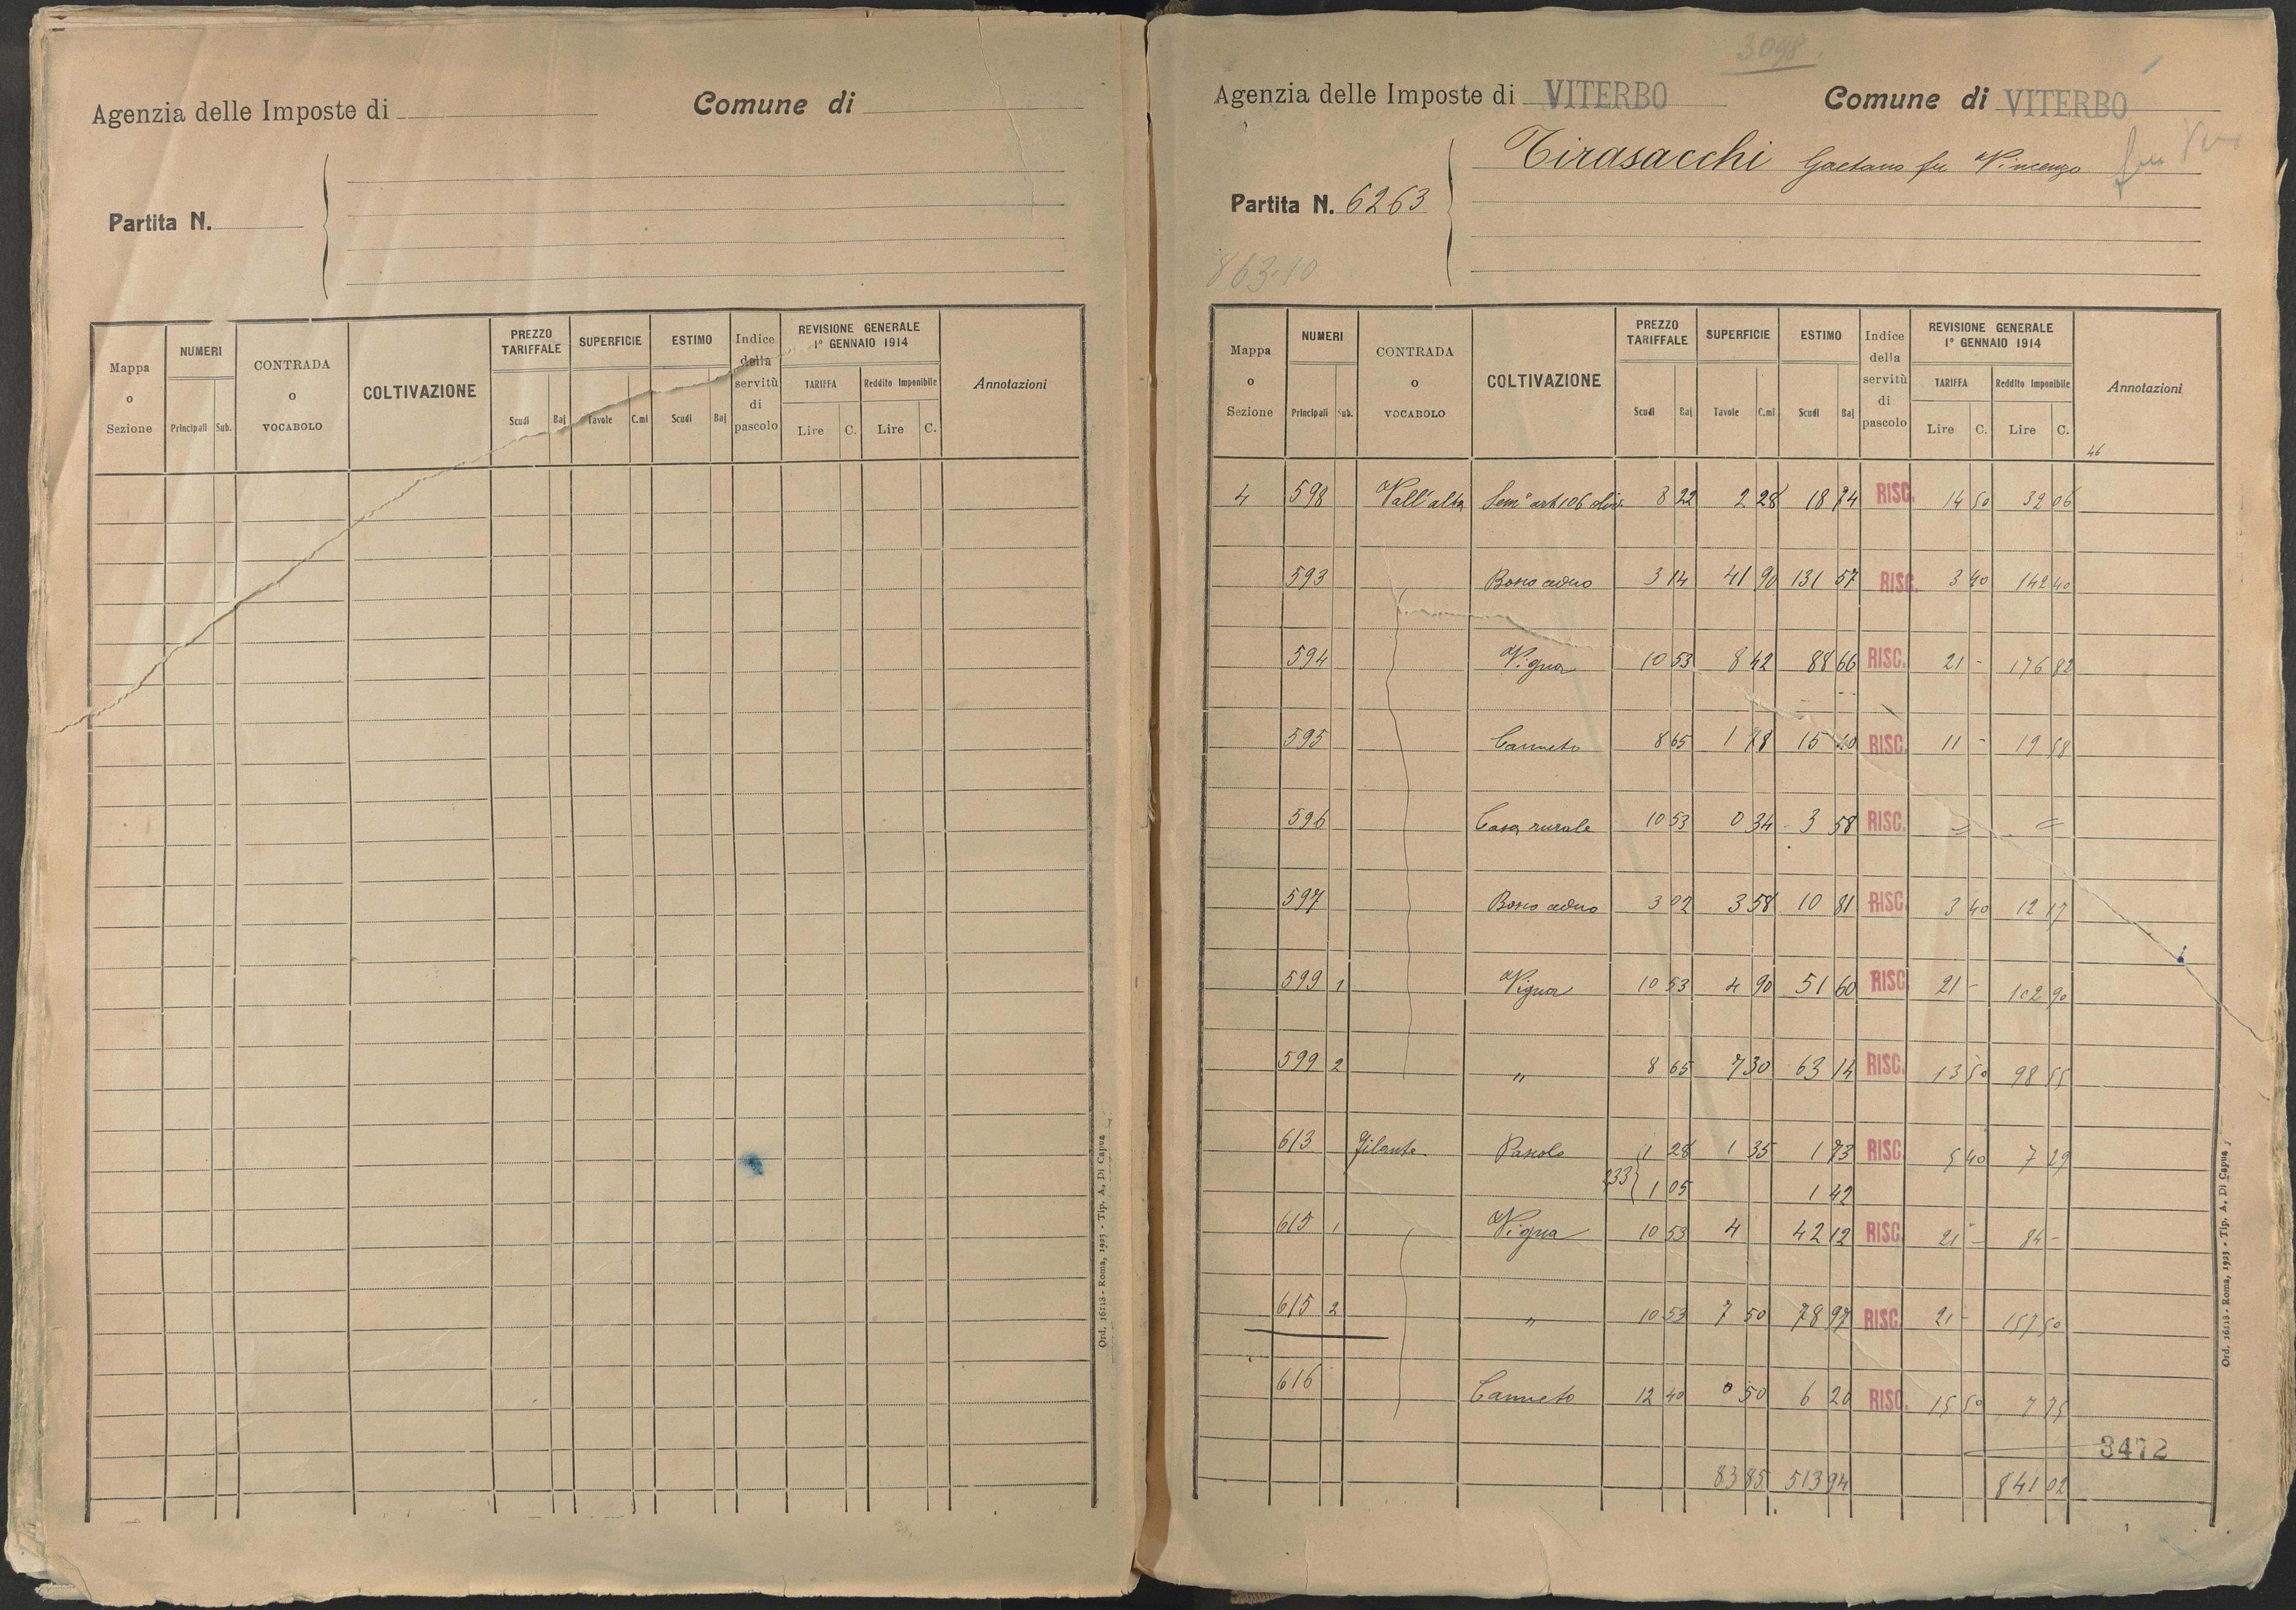 Agenzia delle Imposte di
Comune di
Partita N.
Mappa o Sezione
NUMERI
Principali Sub.
CONTRADA o VOCABOLO
COLTIVAZIONE
PREZZO TARIFFALE
Scudi Baj
SUPERFICIE
Tavole C.mi
ESTIMO
Scudi Baj
Indice della servitù di pascolo
REVISIONE GENERALE 1° GENNAIO 1914
TARIFFA
Lire C.
Reddito Imponibile
Lire C.
Annotazioni
Ord. 16118 - Roma, 1923 - Tip. A. Di Capua
3098
Agenzia delle Imposte di VITERBO
Comune di VITERBO
Tirasacchi Gaetano fu Vincenzo
Partita N. 6263
863.10
Mappa o Sezione
NUMERI
Principali Sub.
CONTRADA o VOCABOLO
COLTIVAZIONE
PREZZO TARIFFALE
Scudi Baj
SUPERFICIE
Tavole C.mi
ESTIMO
Scudi Baj
Indice della servitù di pascolo
REVISIONE GENERALE 1° GENNAIO 1914
TARIFFA
Lire C.
Reddito Imponibile
Lire C.
Annotazioni
46
4 598 Vall'alta Sem° art 106 oliv. 8 22 2 28 18 74 RISC. 14 50 32 06
593 Bosco ceduo 3 14 41 90 131 57 RISC. 3 40 142 40
594 Vigna 10 53 8 42 88 66 RISC. 21 - 176 82
595 Canneto 8 65 1 78 15 40 RISC. 11 - 19 58
596 Casa rurale 10 53 0 34 3 58 RISC. = =
597 Bosco ceduo 3 02 3 58 10 81 RISC. 3 40 12 17
599 1 Vigna 10 53 4 90 51 60 RISC. 21 - 102 90
599 2 " 8 65 7 30 63 14 RISC. 13 50 98 55
613 Filante Pascolo 1 28 1 35 1 73 RISC. 5 40 7 29
233 1 05 1 42
615 1 Vigna 10 53 4 42 12 RISC. 21 - 84 -
615 2 " 10 53 7 50 78 97 RISC. 21 - 157 50
616 Canneto 12 40 0 50 6 20 RISC. 15 50 7 75
3472
83 85 513 94 841 02
Ord. 16118 - Roma, 1923 - Tip. A. Di Capua